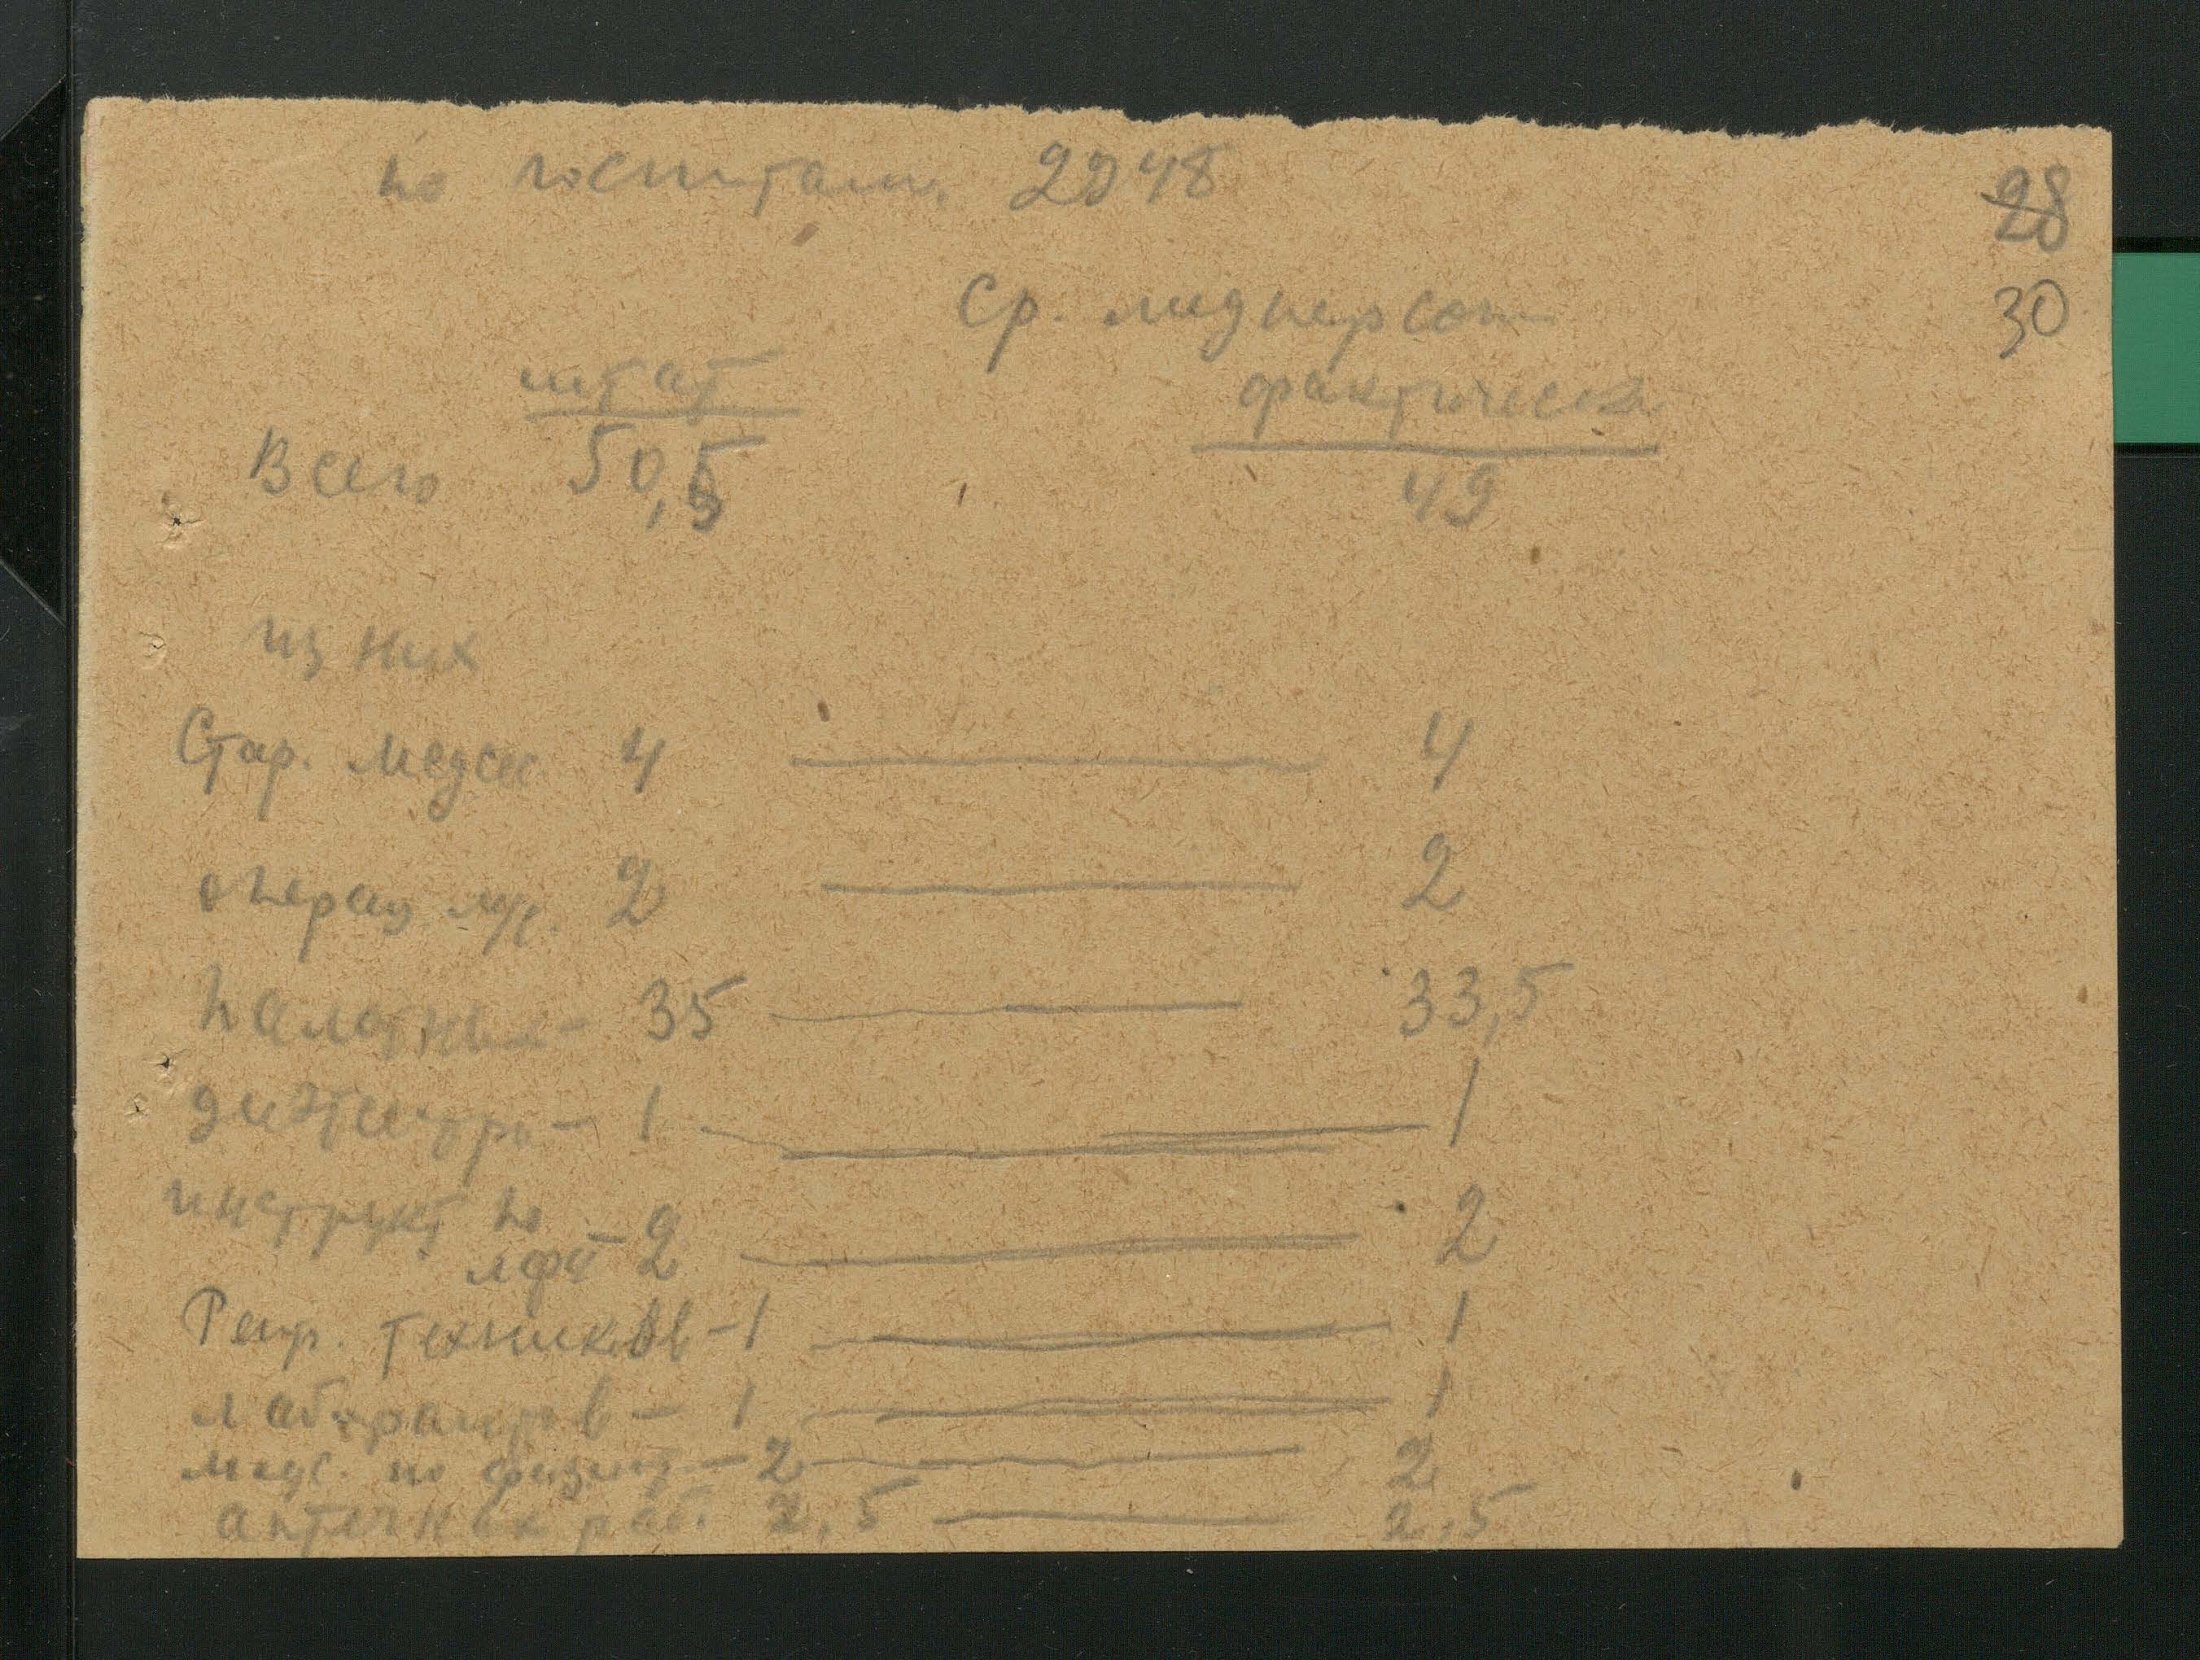 по госпиталю 2948
28
Ср. медперсон
30
штат
фактически
Всего 50,5 49
из них
Стар. медсес. 4 — 4
операц. м/с. 2 — 2
палатных — 35 — 33,5
диэтсестр — 1 — 1
инструкт по
лфк — 2 — 2
Рент. техников — 1 — 1
лаборантов — 1 — 1
медс. по физиот — 2 — 2
аптечных раб. 2,5 — 2,5